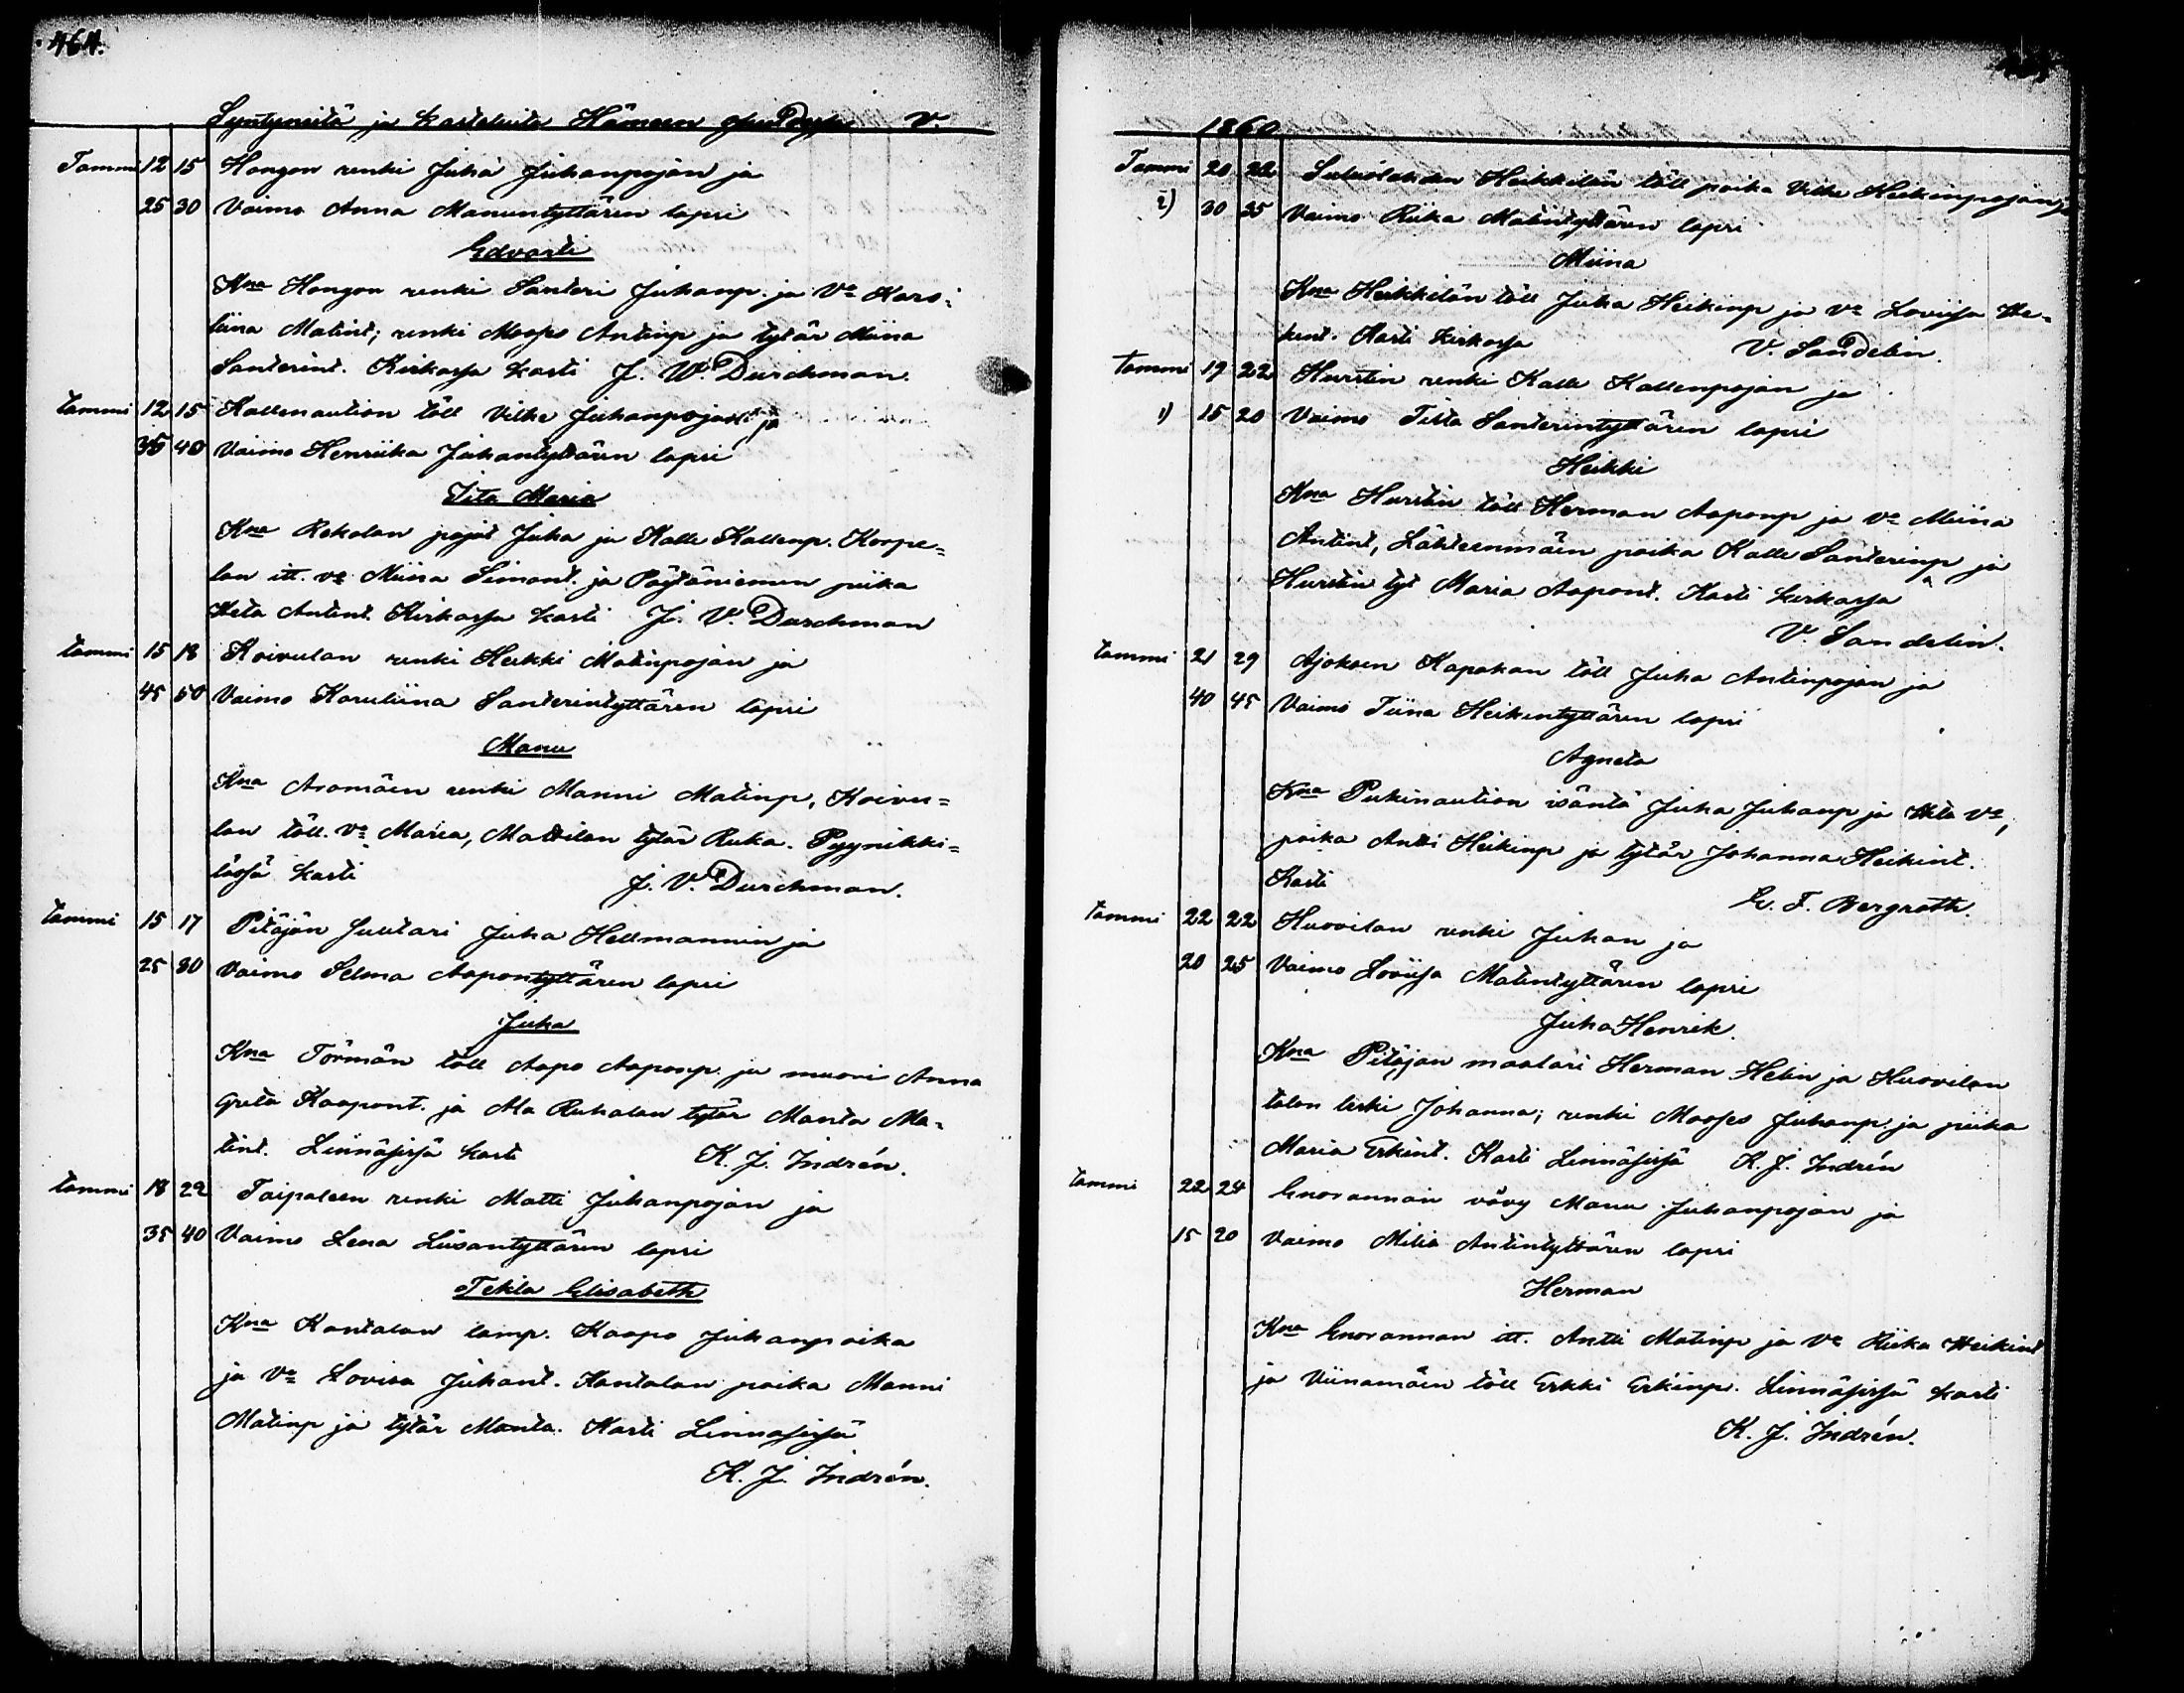 464.
Syntyneitä ja kasteluita Hämeen V.
Tammi 12 15 Hongon renki Juha Juhanpojan ja
25 30 Vaimo Anna Manuntyttären lapsi
Edvarti
Kna Hongon renki Santeri Juhanp. ja Va Karo-
liina Matint; renki Moses Antinp ja tytär Miina
Santerint. Kirkossa kasti J. W. Durchman.
tammi 12 15 Kallenaution töll Vilhe Juhanpojan ja
35 40 Vaimo Henriika Juhantyttären lapsi
Iita Maria
Kna Rekolan pojat Juha ja Kalle Kallenp. Korpe-
lan itt. va Miina Simont. ja Pöytäniemen piika
Heta Antint. Kirkossa kasti J. V. Durchman
tammi 15 18 Koivulan renki Heikki Matinpojan ja
45 50 Vaimo Karuliina Santerintyttären lapsi
Manu
Kna Aromäen renki Manni Matinp, Koivu-
lan töll. va Maria, Mattilan tytär Ruka. Pyynikki-
lässä kasti J. V. Durchman.
tammi 15 17 Pitäjän suutari Juha Hellmannin ja
25 30 Vaimo Selma Aapontyttären lapsi
Juha
Kna Törmän töll Aapo Aaponp. ja muori Anna
Greta Kaapont. ja Ala Ruhalan tytär Manta Ma-
tint. Linnäsissä kasti K. J. Indrén.
tammi 18 22 Taipaleen renki Matti Juhanpojan ja
35 40 Vaimo Lena Liisantyttären lapsi
Tekla Elisabeth
Kna Kantolan lamp. Kaapo Juhanpoika
ja Va Lovisa Juhant. Kantolan poika Manni
Matinp ja tytär Manta. Kasti Linnasissä
K. J. Indrén.
1860
Tammi 20 22 Heikkilän töll poika Vilhe Heikinpojan ja
2) 30 35 Vaimo Riika Matintyttären lapsi
Miina
Kna Heikkilän töll Juha Heikinp ja va Loviisa He-
kint. Kasti kirkossa V. Sandelin.
tammi 19 22 Hurstin renki Kalle Kallenpojan ja
1) 15 20 Vaimo Tilta Santerintyttären lapsi
Heikki
Kna Hurstin töll Herman Aaponp ja va Miina
Antint, Lähteenmäen poika Kalle Santerinp ja
Hurstin tyt Maria Aapont. Kasti kirkossa
V. Sandelin.
tammi 21 29 Ajoksen Kapakan töll Juha Antinpojan ja
40 45 Vaimo Tiina Heikintyttären lapsi
Agneta
Kna Pukinaution isäntä Juha Juhanp ja Heta va,
poika Antti Heikinp ja tytär Johanna Heikint.
Kasti E. F. Bergroth.
tammi 22 22 Huovilan renki Juhan ja
20 25 Vaimo Loviisa Matintyttären lapsi
Juha Henrik.
Kna Pitäjän maalari Herman Helin ja Huovilan
talon leski Johanna; renki Mooses Juhanp. ja piika
Maria Erkint. Kasti Linnäsissä K. J. Indrén
tammi 22 24 Enorannan vävy Manu Juhanpojan ja
15 20 Vaimo Milia Antintyttären lapsi
Herman
Kna Enorannan itt. Antti Matinp ja va Riika Heikint
ja Viinamäen töll Erkki Erkinp. Linnäsissä kasti
K. J. Indrén.